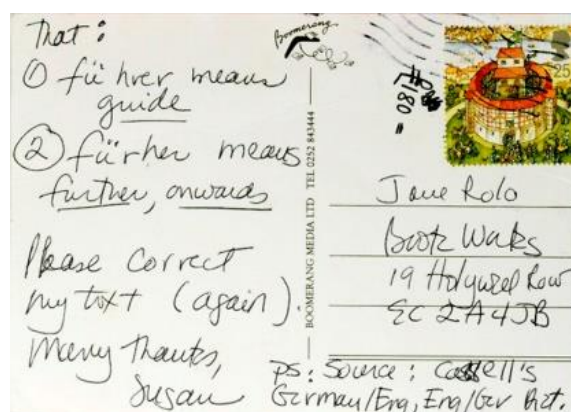 That:
① führer means
guide
② fürher means
further, onwards
Please Correct
my text (again).
Many thanks,
Susan
Boomerang
BOOMERANG MEDIA LTD TEL 0252 843444
25
Jane Rolo
Book Works
19 Holywell Row
EC2A4JB
ps: Source: Cassell's
German/Eng, Eng/Ger Dict.